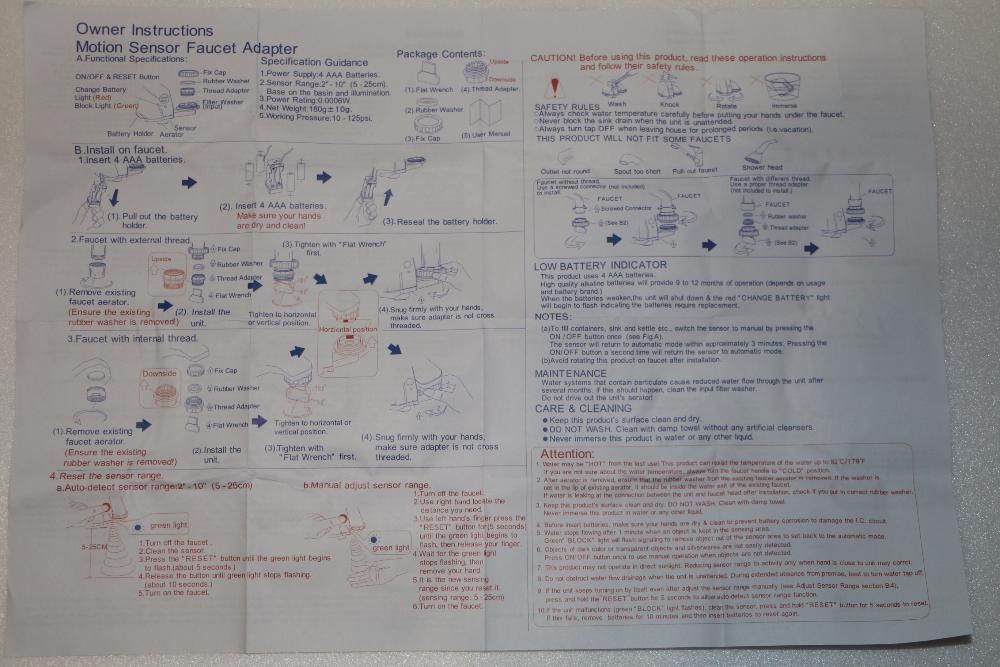 Owner Instructions
Motion Sensor Faucet Adapter
A.Functional Specifications:
ON/OFF & RESET Button
Change Battery
Light (Red)
Block Light (Green)
Battery Holder
Aerator
Sensor
Fix Cap
Rubber Washer
Thread Adapter
Filter Washer
(Input)
Specification Guidance
1.Power Supply:4 AAA Batteries.
2.Sensor Range:2"-10" (5-25cm).
Base on the basin and illumination.
3.Power Rating:0.0006W.
4.Net Weight:180g±10g.
5.Working Pressure:10 - 125psi.
Package Contents:
Upside
Downside
(1).Flat Wrench
(4).Thread Adapter
(2).Rubber Washer
(3).Fix Cap
(5).User Manual
B.Install on faucet.
1.Insert 4 AAA batteries.
(1). Pull out the battery
holder.
(2). Insert 4 AAA batteries.
Make sure your hands
are dry and clean!
(3). Reseal the battery holder.
2.Faucet with external thread
Upside
Fix Cap
Rubber Washer
Thread Adapter
Flat Wrench
(1).Remove existing
faucet aerator.
(Ensure the existing
rubber washer is removed!)
(2). Install the
unit.
(3).Tighten with "Flat Wrench"
first.
Tighten to horizontal
or vertical position.
Horziontal position
(4).Snug firmly with your hands,
make sure adapter is not cross
threaded.
3.Faucet with internal thread.
Downside
Fix Cap
Rubber Washer
Thread Adapter
Flat Wrench
(1).Remove existing
faucet aerator.
(Ensure the existing
rubber washer is removed!)
(2).Install the
unit.
Tighten to horizontal or
vertical position.
(3).Tighten with
"Flat Wrench" first.
(4).Snug firmly with your hands,
make sure adapter is not cross
threaded.
4.Reset the sensor range.
a.Auto-detect sensor range:2"-10" (5-25cm)
green light
5-25CM
1.Turn off the faucet
2.Clean the sensor.
3.Press the "RESET" button until the green light begins
to flash.(about 5 seconds.)
4.Release the button until green light stops flashing.
(about 10 seconds.)
5.Turn on the faucet.
b.Manual adjust sensor range.
green light
1.Turn off the faucet.
2.Use right hand locate the
distance you need.
3.Use left hand's finger press the
"RESET" button for(5 seconds)
until the green light begins to
flash, then release your finger.
4.Wait for the green light
stops flashing, then
remove your hand
5.It is the new sensing
range since you reset it
(sensing range: 5-25cm)
6.Turn on the faucet.
CAUTION! Before using this product, read these operation instructions
and follow their safety rules.
Wash
Knock
Rotate
Immerse
SAFETY RULES
Always check water temperature carefully before putting your hands under the faucet.
Never block the sink drain when the unit is unattended.
Always turn tap OFF when leaving house for prolonged periods (i.e.vacation).
THIS PRODUCT WILL NOT FIT SOME FAUCETS
Outlet not round
Spout too short
Pull out faucet
Shower head
Faucet without thread.
Use a screwed connector (not included)
to install.
FAUCET
Screwed Connector
(See B2)
FAUCET
Faucet with different thread.
Use a proper thread adapter
(not included to install.)
FAUCET
Rubber washer
Thread adapter
(See B2)
FAUCET
LOW BATTERY INDICATOR
This product uses 4 AAA batteries.
High quality alkaline batteries will provide 9 to 12 months of operation (depends on usage
and battery brand.)
When the batteries weaken,the unit will shut down & the red "CHANGE BATTERY" light
will begin to flash indicating the batteries require replacement.
NOTES:
(a)To fill containers, sink and kettle etc., switch the sensor to manual by pressing the
ON/OFF button once (see Fig.A).
The sensor will return to automatic mode within approximately 3 minutes. Pressing the
ON/OFF button a second time will return the sensor to automatic mode.
(b)Avoid rotating this product on faucet after installation.
MAINTENANCE
Water systems that contain particulate cause reduced water flow through the unit after
several months. If this should happen, clean the input filter washer.
Do not drive out the unit's aerator!
CARE & CLEANING
● Keep this product's surface clean and dry.
● DO NOT WASH. Clean with damp towel without any artificial cleansers
● Never immerse this product in water or any other liquid.
Attention:
1. Water may be "HOT" from the last use! This product can resist the temperature of the water up to 80°C/176°F
If you are not sure about the water temperature, always turn the faucet handle to "COLD" position.
2. After aerator is removed, ensure that the rubber washer from the existing faucet aerator is removed. If the washer is
not in the lip of existing aerator, it should be inside the water exit of the existing faucet.
If water is leaking at the connection between the unit and faucet head after installation, check if you put in correct rubber washer.
3. Keep this product's surface clean and dry. DO NOT WASH. Clean with damp towel.
Never immerse this product in water or any other liquid.
4. Before insert batteries, make sure your hands are dry & clean to prevent battery corrosion to damage the I.C. circuit.
5. Water stops flowing after 1 minute when an object is kept in the sensing area.
Green" BLOCK" light will flash signaling to remove object out of the sensor area to set back to the automatic mode.
6. Objects of dark color or transparent objects and silverwares are not easily detected.
Press ON/OFF button once to use manual operation when objects are not detected.
7. This product may not operate in direct sunlight. Reducing sensor range to activity only when hand is close to unit may correct.
8. Do not obstruct water flow drainage when the unit is unattended. During extended absence from premise, best to turn water tap off.
9. If the unit keeps turning on by itself even after adjust the sensor range manually (see Adjust Sensor Range section B4),
press and hold the"RESET" button for 5 seconds to allow auto-detect sensor range function.
10.If the unit malfunctions (green "BLOCK" light flashes), clean the sensor, press and hold "RESET" button for 5 seconds to reset.
If this fails, remove batteries for 10 minutes and then insert batteries to reset again.